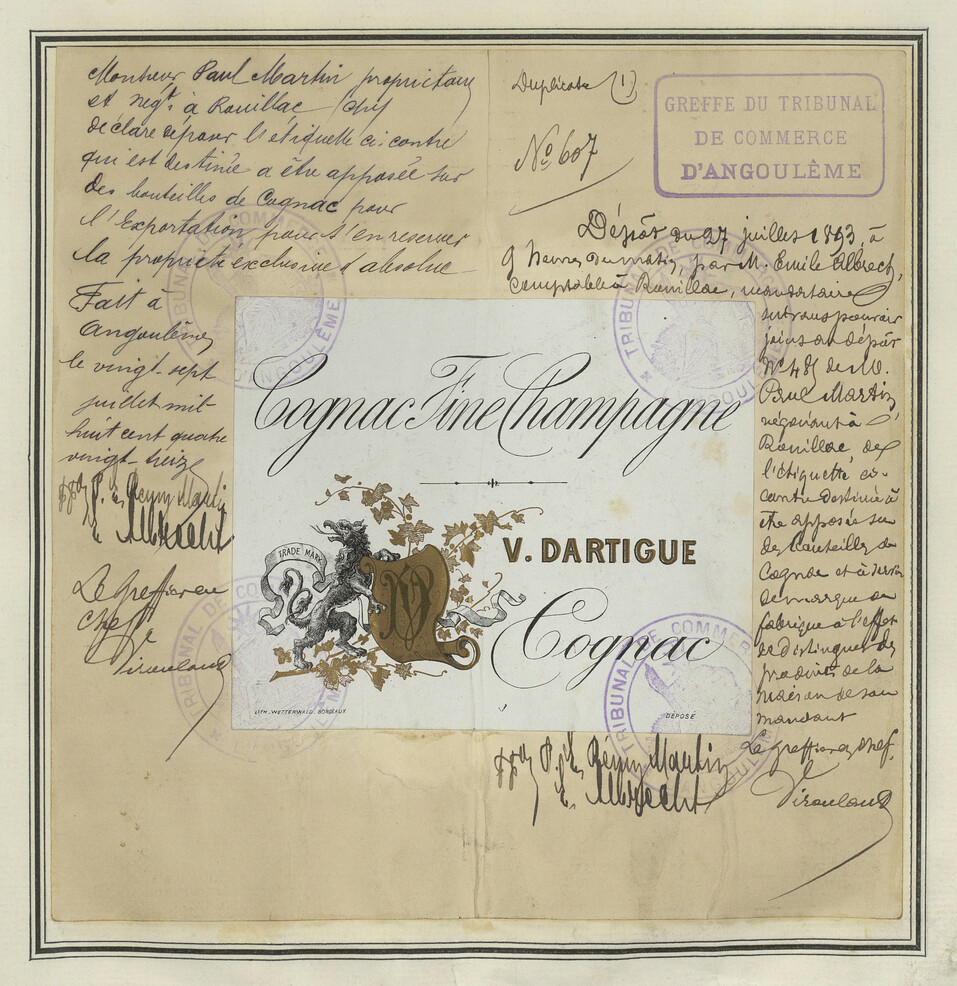 Monsieur Paul Martin propriétaire
et négt. à Rouillac
déclare déposer l'étiquette ci-contre
qui est destinée a être apposée sur
des bouteilles de Cognac pour
l'Exportation pour s'en reserver
la propriété exclusive & absolue
Fait à
Angoulême,
le vingt-sept
juillet mil-
huit cent quatre
vingt-treize
P. E. Rémy Martin
E. Albrecht
Le Greffier en
chef
Duplicata (1)
No 607
GREFFE DU TRIBUNAL
DE COMMERCE
D'ANGOULÊME
Dépôt du 27 juillet 1893, à
9 heures du matin, par M. Emile Albrecht,
comptable à Rouillac, mandataire
suivant pouvoir
joint au dépôt
No 485 de M.
Paul Martin,
négociant à
Rouillac, de
l'étiquette ci-
contre destinée à
être apposée sur
des bouteilles de
Cognac et à servir
de marque de
fabrique à l'effet
de distinguer les
produits de la
maison de son
mandant
Le greffier en chef,
P. E. Rémy Martin
E. Albrecht
Cognac Fine Champagne
TRADE MARK
V. DARTIGUE
Cognac
LITH. WETTERWALD. BORDEAUX
DÉPOSÉ
TRIBUNAL DE COMMERCE
D'ANGOULÊME
TRIBUNAL DE COMMERCE
D'ANGOULÊME
TRIBUNAL DE COMMERCE
D'ANGOULÊME
TRIBUNAL DE COMMERCE
D'ANGOULÊME